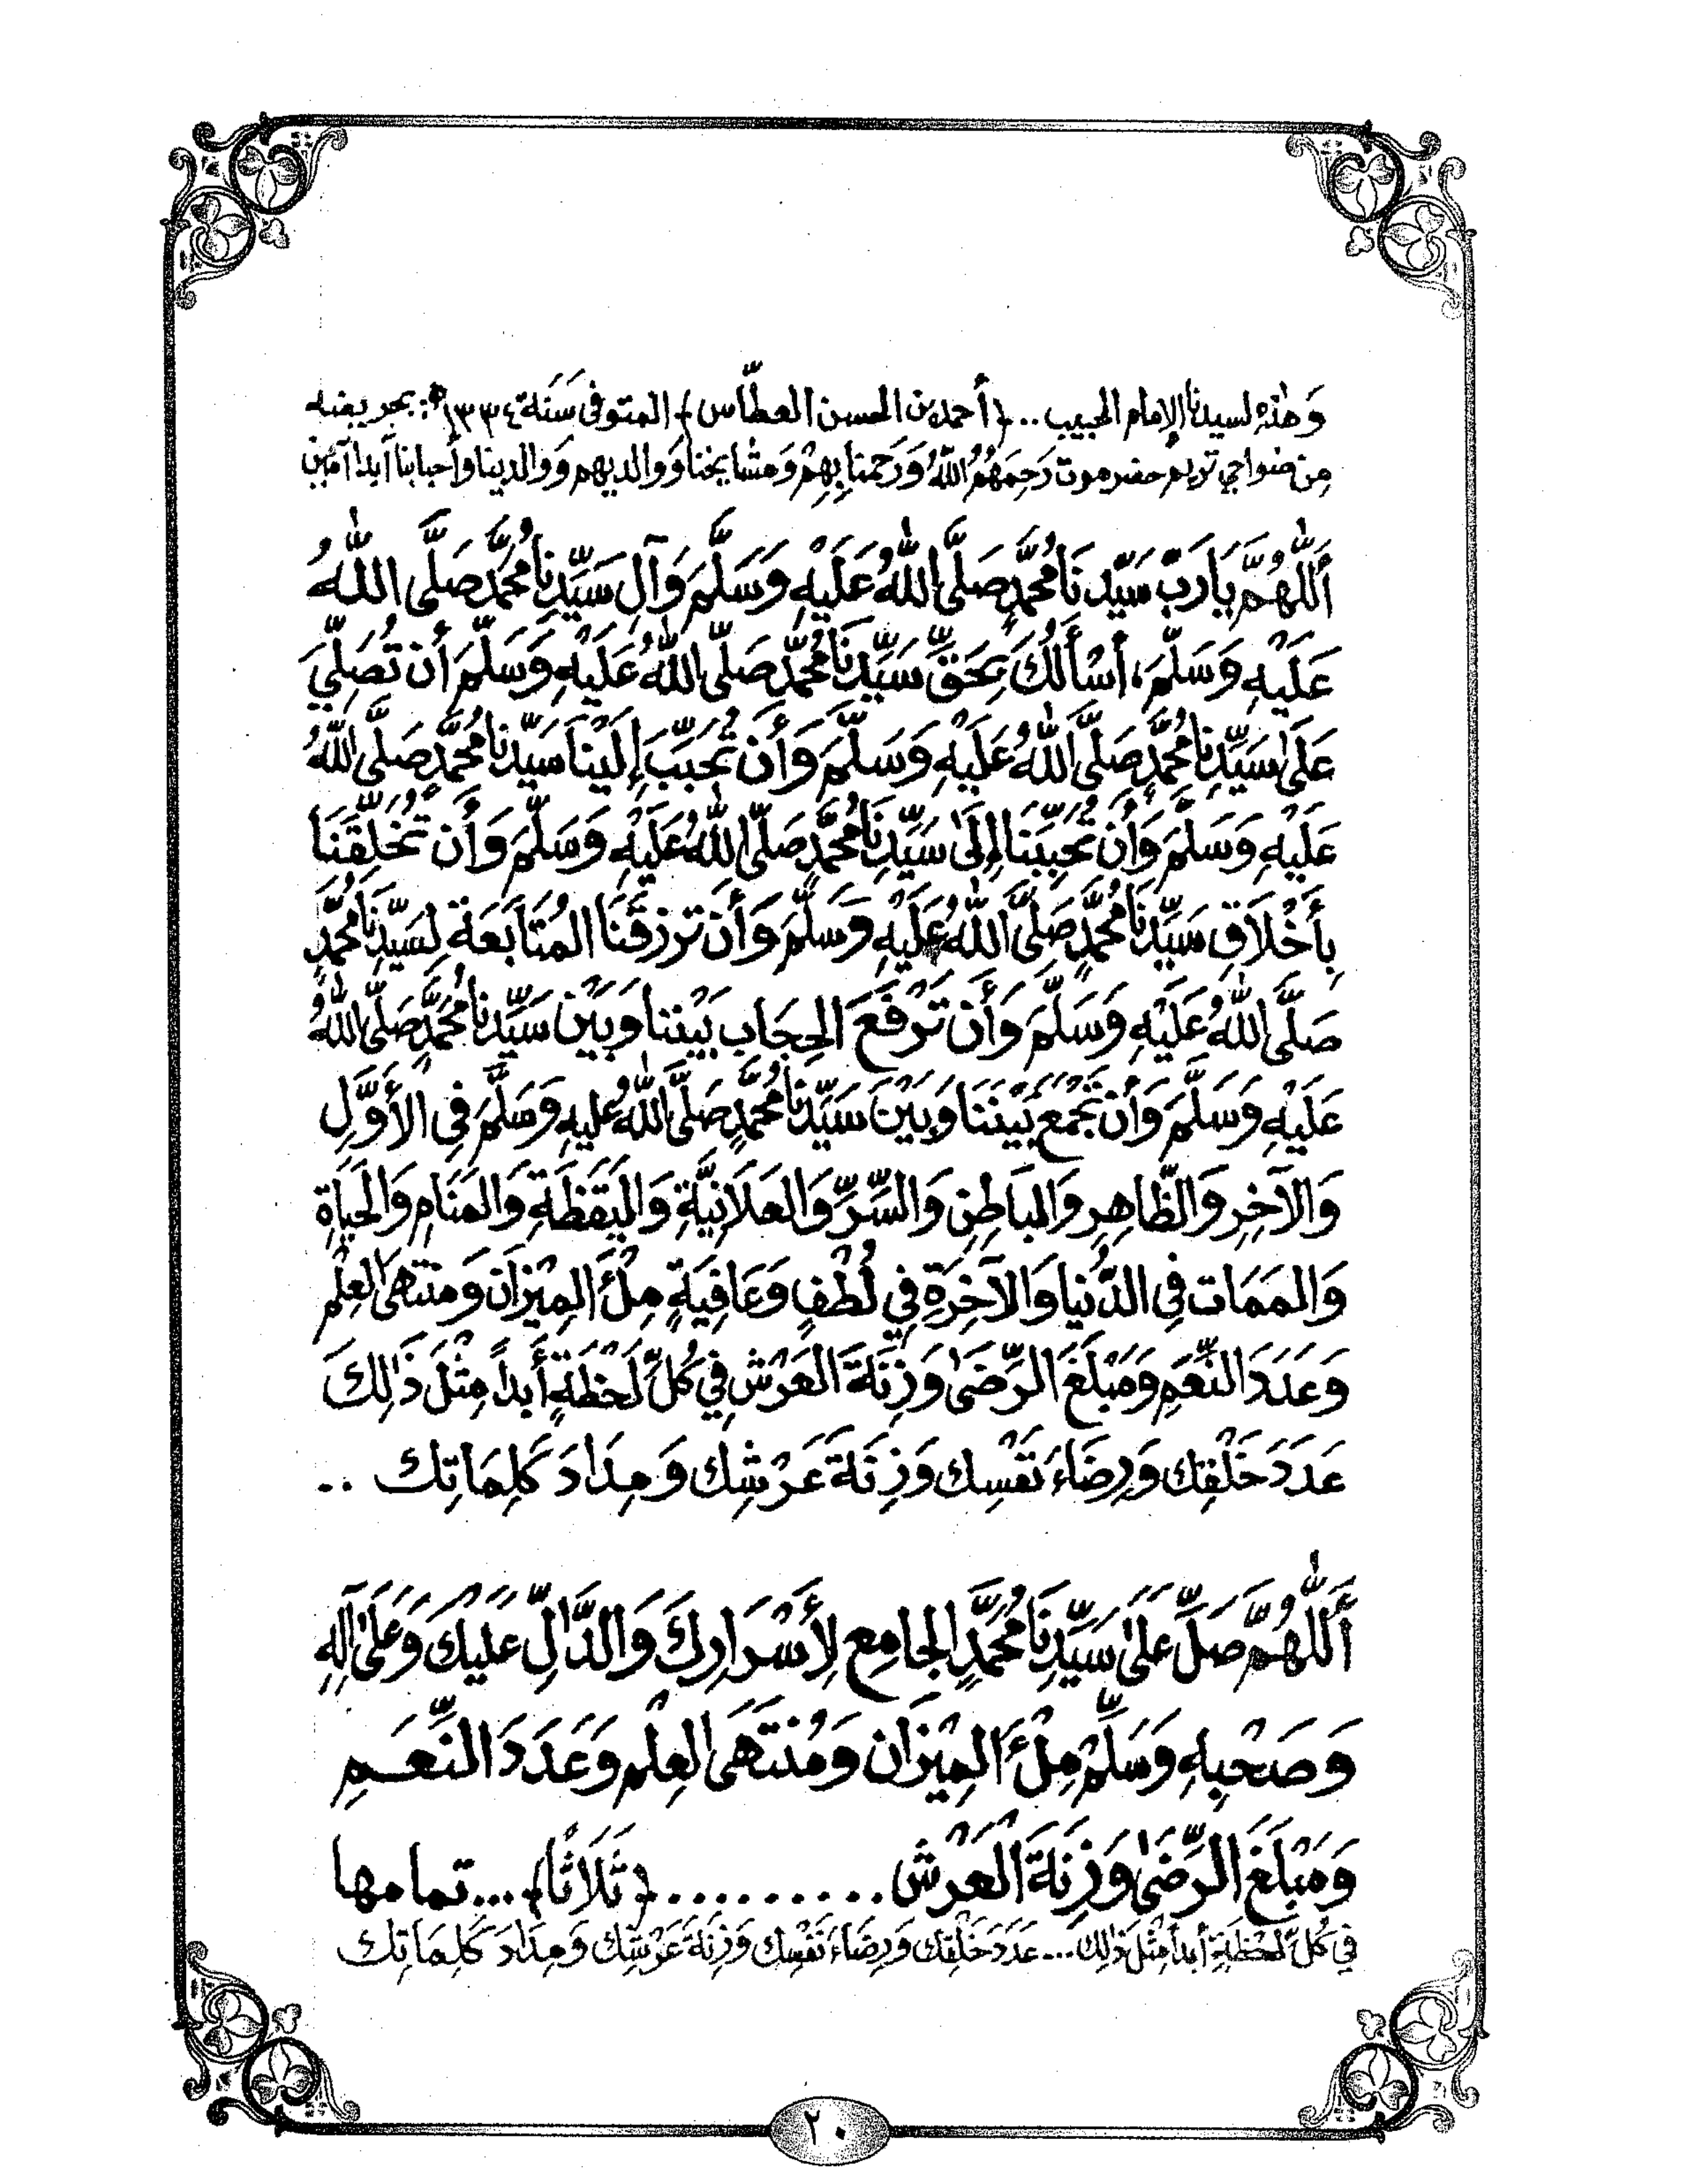 وَهٰذِهِ لسيدنا الإمام الحبيب .. ﴿أحمد بن الحسن العطّاس﴾ المتوفى سَنَة ١٣٣٤ھ: بحريضه
مِن ضواحي تريم حضرموت رَحِمَهُمُ اللهُ وَرَحِمنا بِهِمْ وَمشايخنا وَوالديهم وَوالدينا وأحبابنا آبدا آمين
أَللّٰهُمَّ يَارَبّ سَيِّدِنَا مُحَمَّدٍ صَلَّى اللّٰهُ عَلَيْهِ وَسَلَّمَ وَآلِ سَيِّدِنَا مُحَمَّدٍ صَلَّى اللّٰهُ
عَلَيْهِ وَسَلَّمَ، أَسْأَلُكَ بِحَقِّ سَيِّدِنَا مُحَمَّدٍ صَلَّى اللّٰهُ عَلَيْهِ وَسَلَّمَ أَن تُصَلِّيَ
عَلَىٰ سَيِّدِنَا مُحَمَّدٍ صَلَّى اللّٰهُ عَلَيْهِ وَسَلَّمَ وَأَن تُحَبِّبَ إِلَيْنَا سَيِّدِنَا مُحَمَّدٍ صَلَّى اللّٰهُ
عَلَيْهِ وَسَلَّمَ وَأَن تُحَبِّبَنَا إِلَىٰ سَيِّدِنَا مُحَمَّدٍ صَلَّى اللّٰهُ عَلَيْهِ وَسَلَّمَ وَأَن تُخَلِّقَنَا
بِأَخْلَاقِ سَيِّدِنَا مُحَمَّدٍ صَلَّى اللّٰهُ عَلَيْهِ وَسَلَّمَ وَأَن تَرزقَنَا المُتَابَعَة لِسَيِّدِنَا مُحَمَّدٍ
صَلَّى اللّٰهُ عَلَيْهِ وَسَلَّمَ وَأَن تَرْفَعَ الحِجَاب بَيْننا وَبَيْن سَيِّدِنَا مُحَمَّدٍ صَلَّى اللّٰهُ
عَلَيْهِ وَسَلَّمَ وَأَن تَجْمَع بَيْنَنَا وَبَيْنَ سَيِّدِنَا مُحَمَّدٍ صَلَّى اللّٰهُ عليهِ وَسَلَّمَ فِي الأَوَّلِ
وَالآخِرِ وَالظَّاهِرِ وَالبَاطِنِ وَالسِّرِّ وَالعَلَانِيَّةِ وَاليَقَظَةِ وَالمَنَامِ وَالحَيَاةِ
وَالمَمَات فِي الدُّنيا وَالآخِرَةِ فِي لُطْفٍ وَعَافِيَةٍ مِلْءَ المِيْزَان وَمنتَهىَ العِلْم
وَعَدَدَ النِّعَم وَمَبْلَغَ الرِّضَىٰ وَزِنَةَ العَرْش فِي كُلِّ لَحْظَةٍ أَبداً مِثْلَ ذَٰلِكَ
عَدَدَ خَلْقِك وَرِضَاءَ نَفْسِك وَزِنَةَ عَرْشِك وَمِدَادَ كَلِمَاتِك ..
أَللّٰهُمَّ صَلِّ عَلَىٰ سَيِّدِنَا مُحَمَّدٍ الجَامِع لِأَسْرَارِكَ وَالدَّالِّ عَلَيْكَ وَعَلَىٰ آلِهِ
وَصَحْبِهِ وَسَلِّمْ مِلْءَ المِيْزَان وَمُنتَهَىَ العِلْم وَعَدَدَ النِّعَمِ
وَمَبْلَغَ الرِّضَىٰ وَزِنَةَ العَرْش .......... ﴿ثَلَاثًا﴾ ... تمامها
فِي كُلِّ لَحْظَةٍ أبداً مِثْلَ ذٰلِكَ ... عَدَدَ خَلْقِك وَرِضَاءَ نَفْسِك وَزِنَةَ عَرْشِك وَمِدَادَ كَلِمَاتِك
٢٠